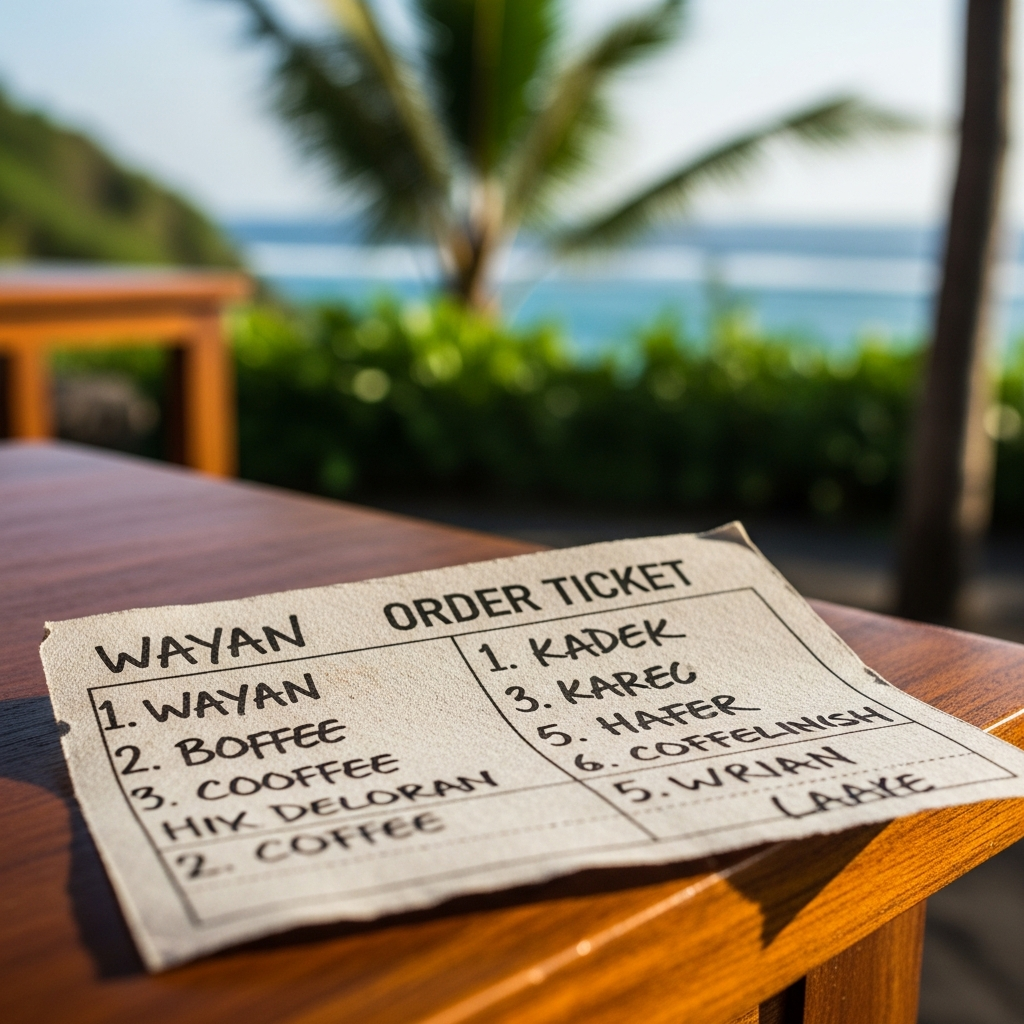 WAYAN ORDER TICKET
1. WAYAN
2. BOFFEE
3. COOFFEE
HIK DELORAN
2. COFFEE
1. KADEK
3. KAREC
5. HAFER
6. COFFELINISH
5. WRIAN
LAAKE